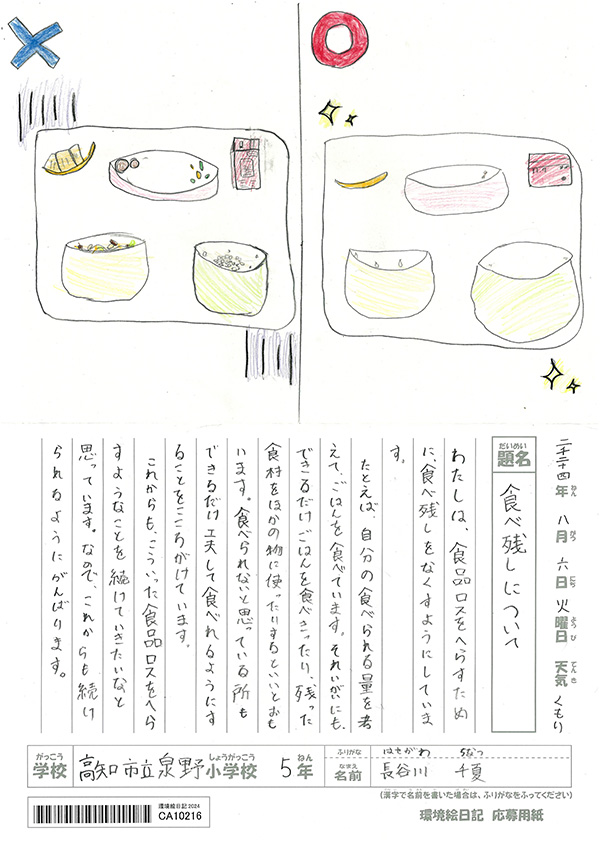 二千二十四年ねん 八月がつ 六日にち 火曜日ようび 天気てんき くもり
だいめい
題名 食べ残しについて
わたしは、食品ロスをへらすため
に、食べ残しをなくすようにしていま
す。
たとえば、自分の食べられる量を考
えて、ごはんを食べています。それいがいにも、
できるだけごはんを食べきったり、残った
食材をほかの物に使ったりするといいとおも
います。食べられないと思っている所も
できるだけ工夫して食べれるようにす
ることをこころがけています。
これからも、こういった食品ロスをへら
すようなことを続けていきたいなと
思っています。なので、これからも続け
られるようにがんばります。
がっこう しょうがっこう ねん ふりがな はせがわ ちなつ
学校 高知市立泉野小学校 5年 なまえ 名前 長谷川 千夏
(漢字で名前を書いた場合は、ふりがなをふってください)
環境絵日記 2024
CA10216
環境絵日記 応募用紙